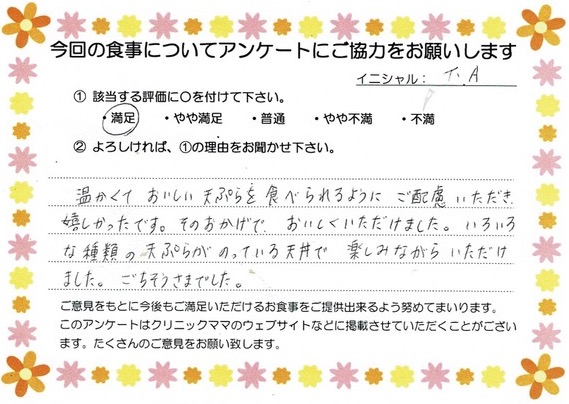 今回の食事についてアンケートにご協力をお願いします
イニシャル： T.A
① 該当する評価に○を付けて下さい。
・満足 ・やや満足 ・普通 ・やや不満 ・不満
② よろしければ、①の理由をお聞かせ下さい。
温かくて おいしい天ぷらを食べられるように ご配慮いただき、
嬉しかったです。そのおかげで、おいしくいただけました。いろいろ
な種類の天ぷらがのっている天丼で 楽しみながらいただけ
ました。ごちそうさまでした。
ご意見をもとに今後もご満足いただけるお食事をご提供出来るよう努めてまいります。
このアンケートはクリニックママのウェブサイトなどに掲載させていただくことがござい
ます。たくさんのご意見をお願い致します。